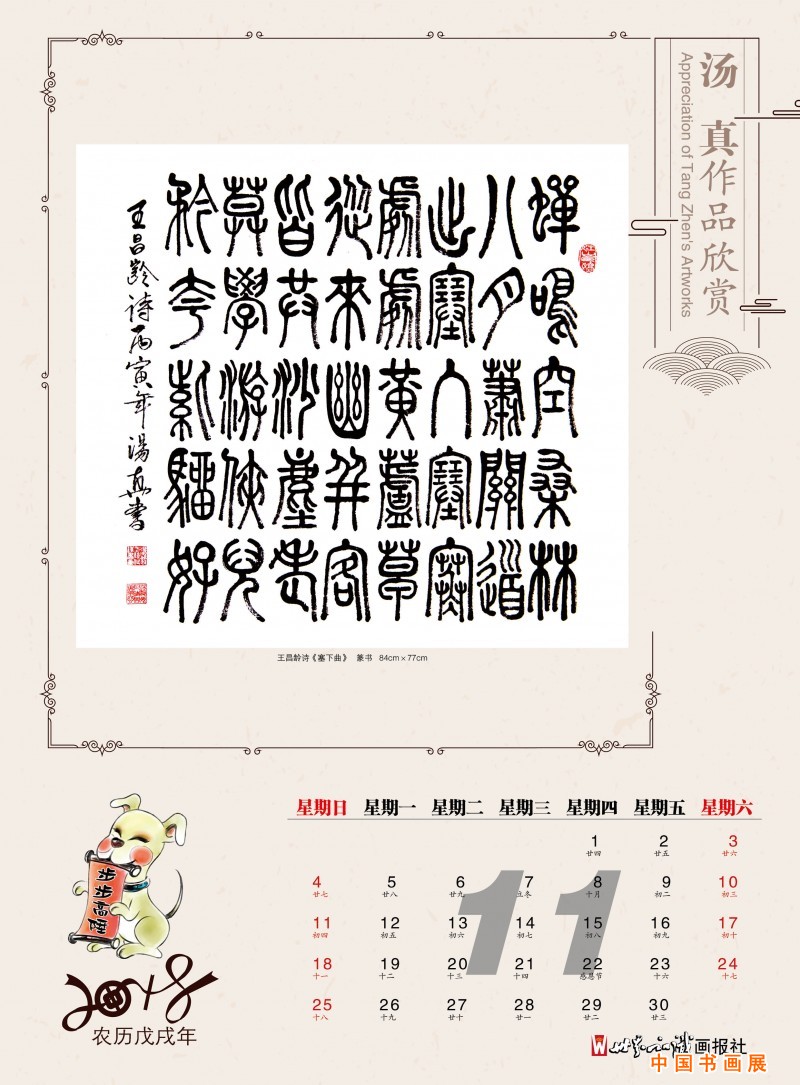 汤真作品欣赏
Appreciation of Tang Zhen's Artworks
蟬鳴空桑林
八月蕭關道
出塞入塞寒
處處黃蘆草
從來幽并客
皆共沙塵老
莫學游俠兒
矜夸紫騮好
王昌齡诗丙寅年湯真書
王昌龄诗《塞下曲》 篆书 84cm×77cm
步步高陞
2018
农历戊戌年
11
星期日 星期一 星期二 星期三 星期四 星期五 星期六
1 2 3
廿四 廿五 廿六
4 5 6 7 8 9 10
廿七 廿八 廿九 立冬 十月 初二 初三
11 12 13 14 15 16 17
初四 初五 初六 初七 初八 初九 初十
18 19 20 21 22 23 24
十一 十二 十三 十四 感恩节 十六 十七
25 26 27 28 29 30
十八 十九 二十 廿一 廿二 廿三
W 世界知识画报社
中国书画展